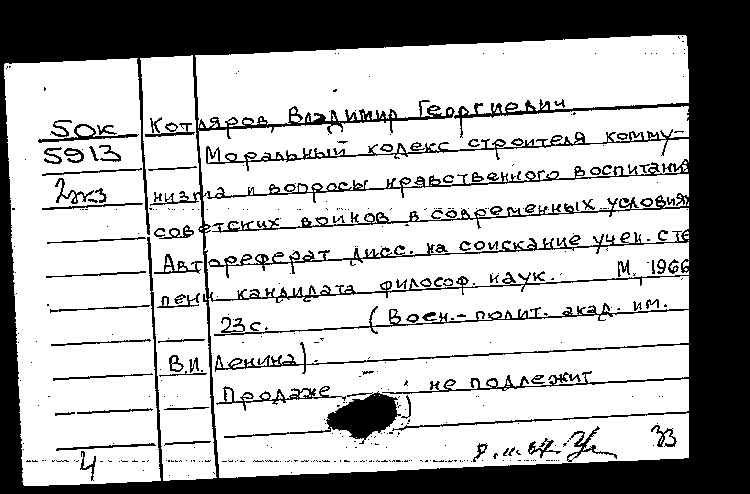 50к Котляров, Владимир Георгиевич.
5913 Моральный кодекс строителя комму-
2жз низма и вопросы нравственного воспитания
советских воинов в современных условиях
Автореферат дисс. на соискание учен. сте
пени кандидата философ. наук. М., 1966
23с. (Воен.-полит. акад. им.
В.И. Ленина).
Продаже не подлежит
4 33